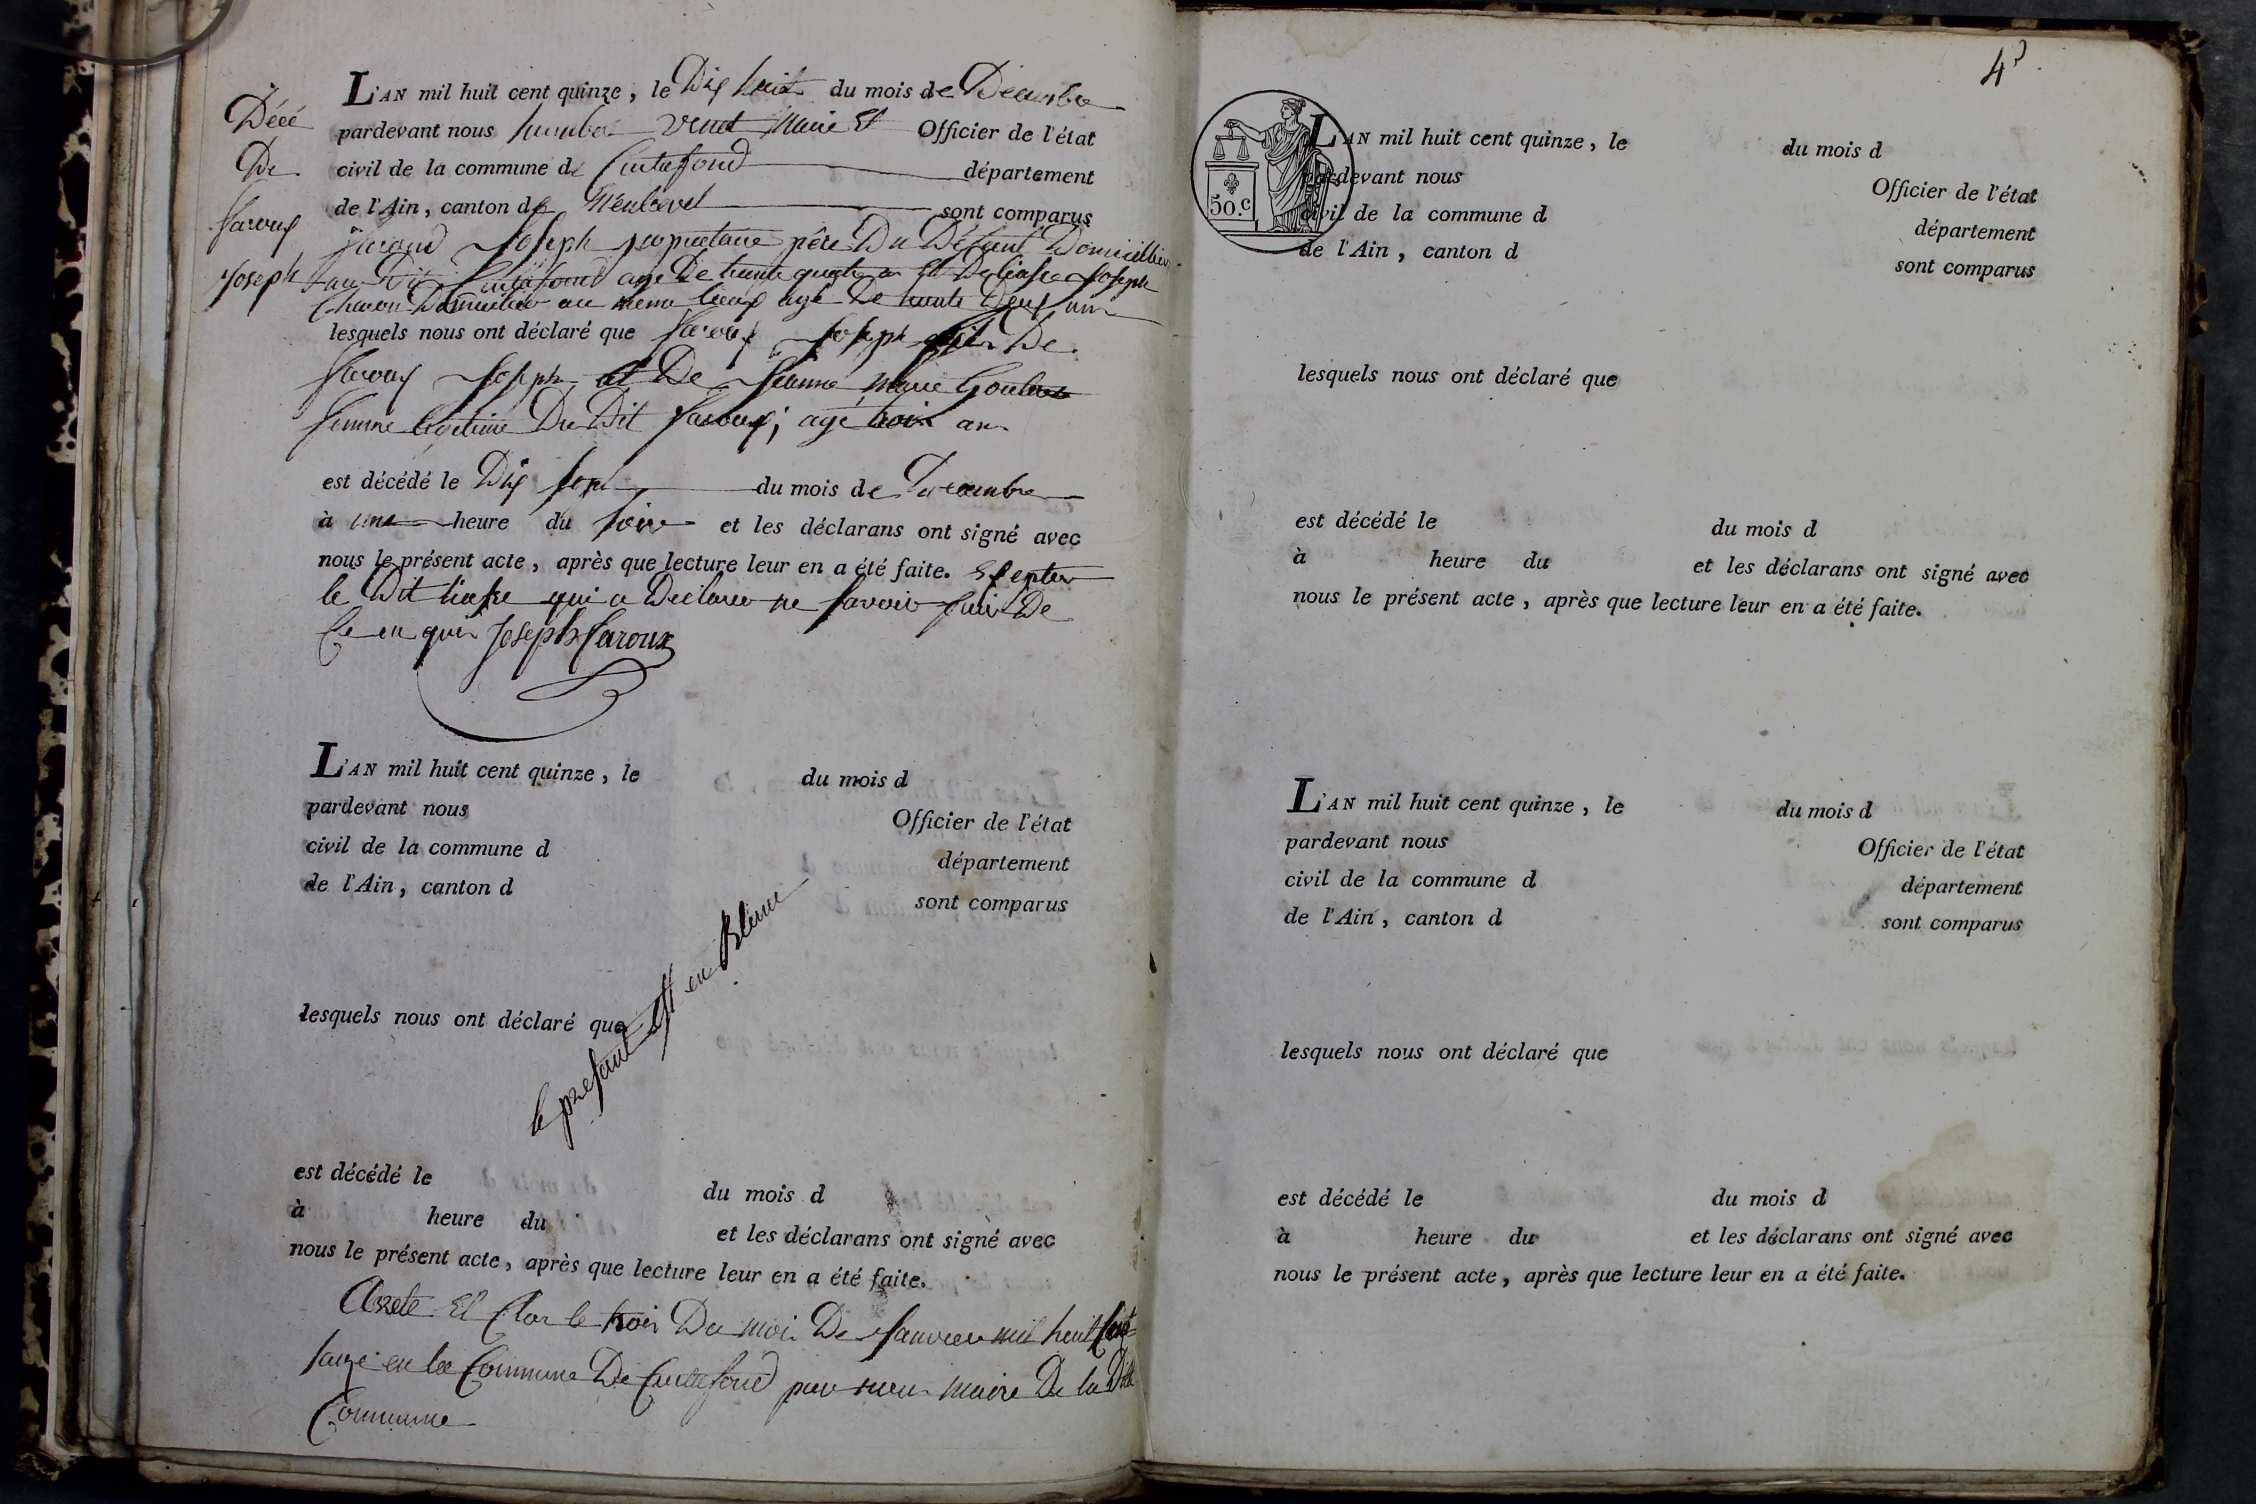 L'AN mil huit cent quinze, le Dix huit du mois de Décembre
Décé
pardevant nous humber venet Maire Et Officier de l'état
De
civil de la commune de Curtafond département
de l'Ain, canton de Monrevel sont comparus
Faroux
Joseph propriétaire père Du Défunt Domicillier
Joseph
au Dit Curtafond age De trente quatre an Et Joseph
Charon Domicilier au meme lieux agé De trente Deux ans
lesquels nous ont déclaré que Faroux Joseph fils De
Faroux Joseph et De Jeanne Marie
femme legitime Du Dit Faroux; agé trois an
est décédé le Dix sept du mois de Decembre
à une heure du soire et les déclarans ont signé avec
nous le présent acte, après que lecture leur en a été faite. Exepter
le Dit liasse qui a Declarer ne savoir faire De
Ce en quis Joseph Faroux
L'AN mil huit cent quinze, le du mois d
pardevant nous Officier de l'état
civil de la commune d département
de l'Ain, canton d sont comparus
lesquels nous ont déclaré que
le presant Est en Blanc
est décédé le du mois d
à heure du et les déclarans ont signé avec
nous le présent acte, après que lecture leur en a été faite.
Arrete Et Clos le trois Du mois De Janvier mil huit Cent
saize en la Commune De Curtafond par nous Maire De la Ditte
Commune
4
50.c
L'AN mil huit cent quinze, le du mois d
pardevant nous Officier de l'état
civil de la commune d département
de l'Ain, canton d sont comparus
lesquels nous ont déclaré que
est décédé le du mois d
à heure du et les déclarans ont signé avec
nous le présent acte, après que lecture leur en a été faite.
L'AN mil huit cent quinze, le du mois d
pardevant nous Officier de l'état
civil de la commune d département
de l'Ain, canton d sont comparus
lesquels nous ont déclaré que
est décédé le du mois d
à heure du et les déclarans ont signé avec
nous le présent acte, après que lecture leur en a été faite.